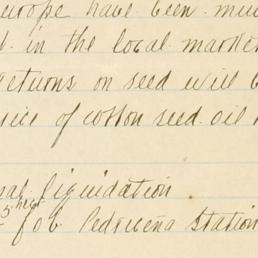 Europe have been much
in the local market
Returns on seed will
price of cotton seed oil
liquidation
5 net
f o b Pedricena Station